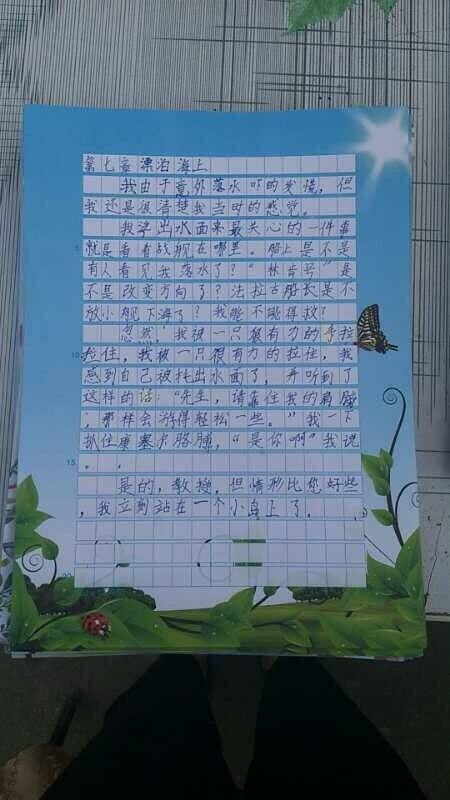 第七章 漂泊海上
我由于意外落水吓的发慌，但
我还是很清楚我当时的感觉。
我浮出水面来最关心的一件事
就是看看战舰在哪里。船上是不是
有人看见我落水了？“林肯号”是
不是改变方向了？法拉古船长是不
放小舰下海了？我能不能得救？
忽然！我被一只很有力的手拉
拉住，我被一只很有力的拉住，我
感到自己被托出水面了，并听到了
这样的话：“先生，请靠住我的肩膀
，那样会游得轻松一些。”我一下
抓住康塞尔胳膊，“是你啊”我说
。
是的，教授，但情形比您好些
，我立刻站在一个小岛上了。
5
10
15